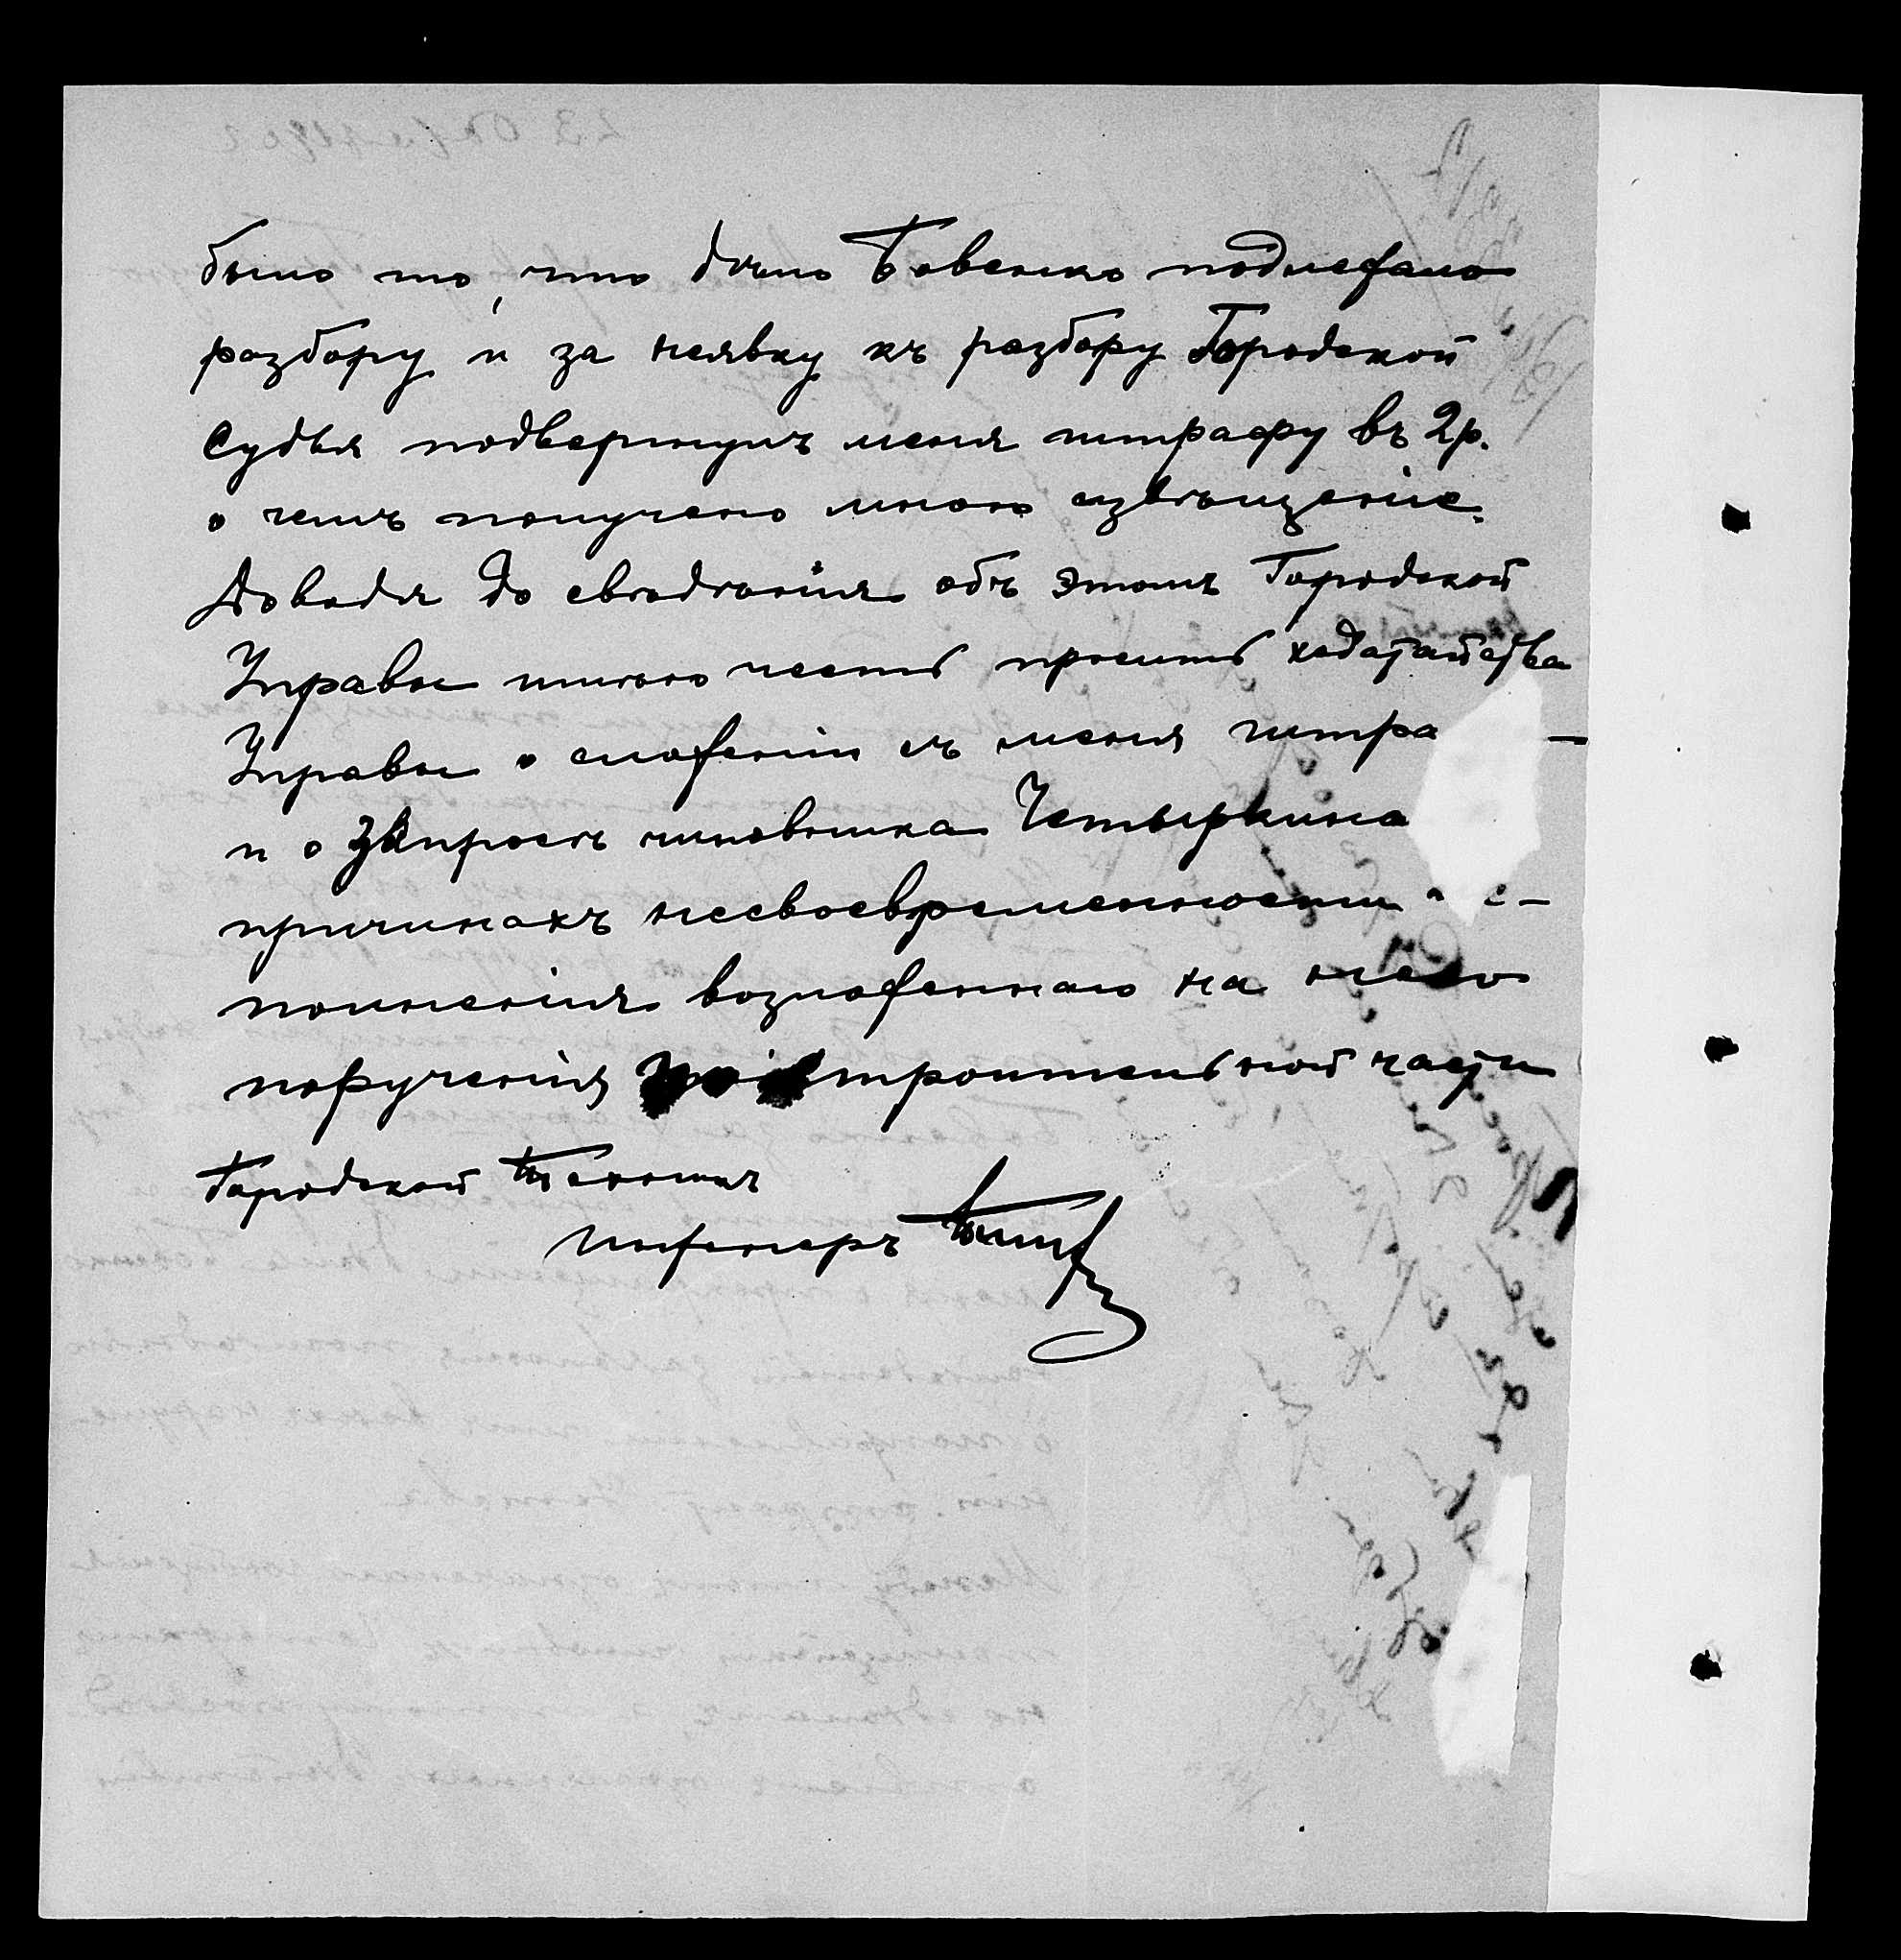 было то, что дѣло Бовенко подлежало
разбору и за неявку къ разбору Городской
Судья подвергнулъ меня штрафу въ 2 р.
о чемъ получено мною извѣщеніе.
Доводя до свѣдѣнія объ этомъ Городской
Управы имѣю честь просить ходатайства
Управы о сложеніи съ меня штра –
и о запросѣ чиновника Четыркина
причинахъ несвоевременности с–
полненія возложеннаго на него
порученія строительной части
Городской Техникъ
Инженеръ